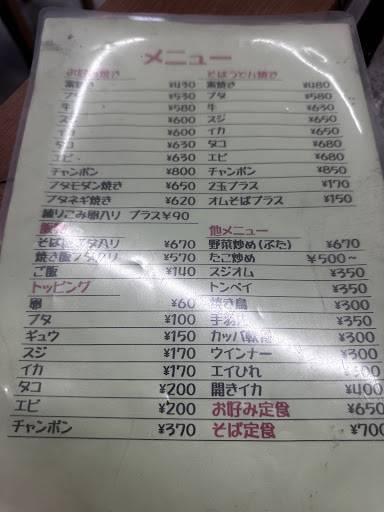 メニュー
お好み焼き
素焼き ¥430
ブタ ¥530
牛 ¥580
スジ ¥600
イカ ¥600
タコ ¥630
エビ ¥630
チャンポン ¥800
ブタモダン焼き ¥650
ブタネギ焼き ¥620
練りこみ卵入り プラス¥90
そばうどん焼き
素焼き ¥480
ブタ ¥580
牛 ¥630
スジ ¥650
イカ ¥650
タコ ¥680
エビ ¥680
チャンポン ¥850
2玉プラス ¥170
オムそばプラス ¥150
そば ブタ入り ¥670
焼き飯ブタ入り ¥570
ご飯 ¥140
トッピング
卵 ¥60
ブタ ¥100
ギュウ ¥150
スジ ¥170
イカ ¥170
タコ ¥200
エビ ¥200
チャンポン ¥370
他メニュー
野菜炒め(ぶた) ¥670
たこ炒め ¥500~
スジオム ¥350
トンペイ ¥350
焼き鳥 ¥300
手羽 ¥350
カッパ軟骨 ¥300
ウインナー ¥300
エイひれ ¥300
開きイカ ¥400
お好み定食 ¥650
そば定食 ¥700